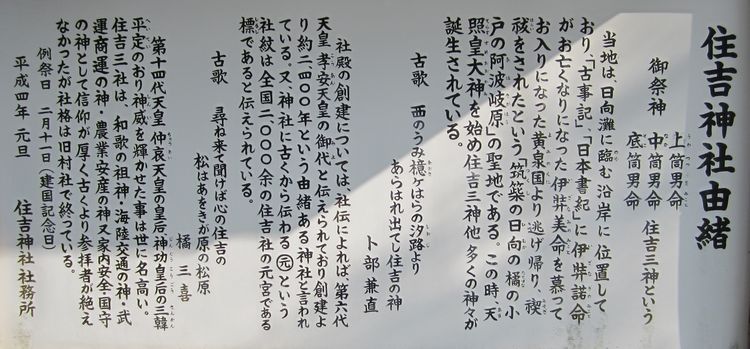 住吉神社由緒
御祭神
上筒男命
中筒男命
底筒男命
住吉三神という
当地は、日向灘に臨む沿岸に位置して
おり、「古事記」、「日本書記」に伊弉諾命
がお亡くなりになった伊弉美命を慕って
お入りになった黄泉国より逃げ帰り、禊
祓をされたという「筑築の日向の橘の小
戸の阿波岐原」の聖地である。この時、天
照皇大神を始め住吉三神他多くの神々が
誕生されている。
古歌 西のうみ檍ヶはらの汐路より
あらはれ出でし住吉の神
卜部兼直
社殿の創建については、社伝によれば、第六代
天皇孝安天皇の御代と伝えられており創建よ
り約二四〇〇年という由緒ある神社と言われ
ている。又、神社に古くから伝わる㊄という
社紋は全国二、〇〇〇余の住吉社の元宮である
標であると伝えられている。
古歌 尋ね来て聞けば心の住吉の
松はあをきが原の松原
橘 三喜
第十四代天皇仲哀天皇の皇后神功皇后の三韓
平定のおり神威を輝かせた事は世に名高い。
住吉三社は、和歌の祖神・海陸交通の神・武
運商運の神・農業安産の神又家内安全国守
の神として信仰が厚く古くより参拝者が絶え
なかったが社格は旧村社で終っている。
例祭日 二月十一日(建国記念日)
平成四年 元旦
住吉神社社務所